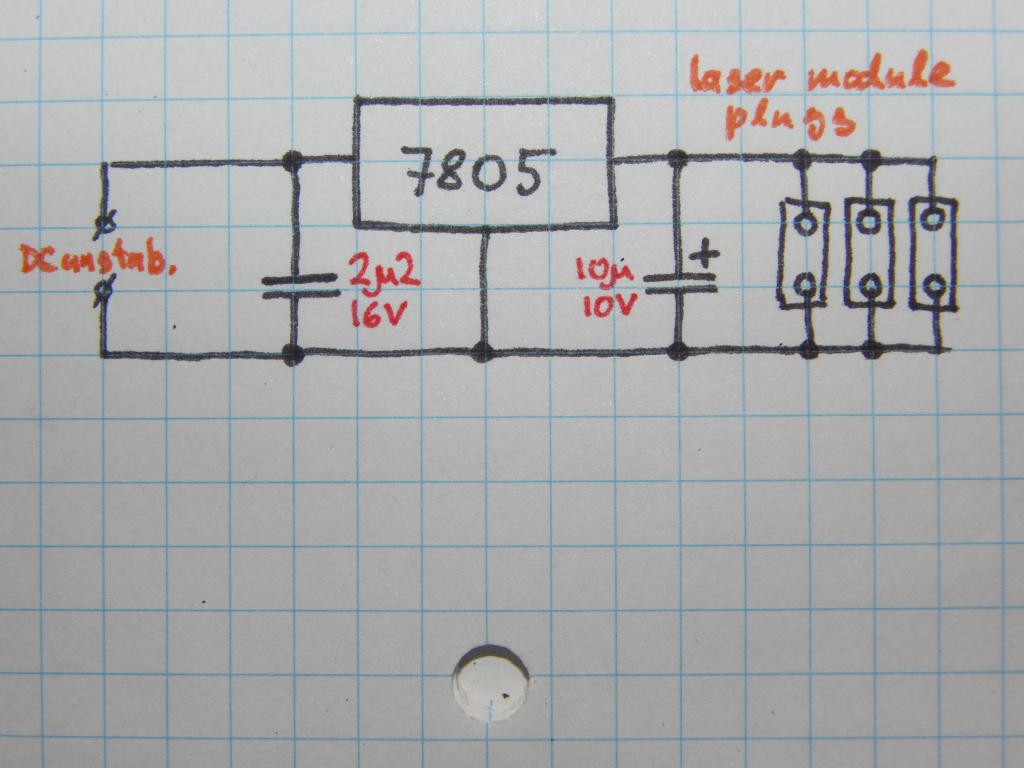 laser module
plugs
7805
DC unstab.
2µ2
16V
10µ
10V
+